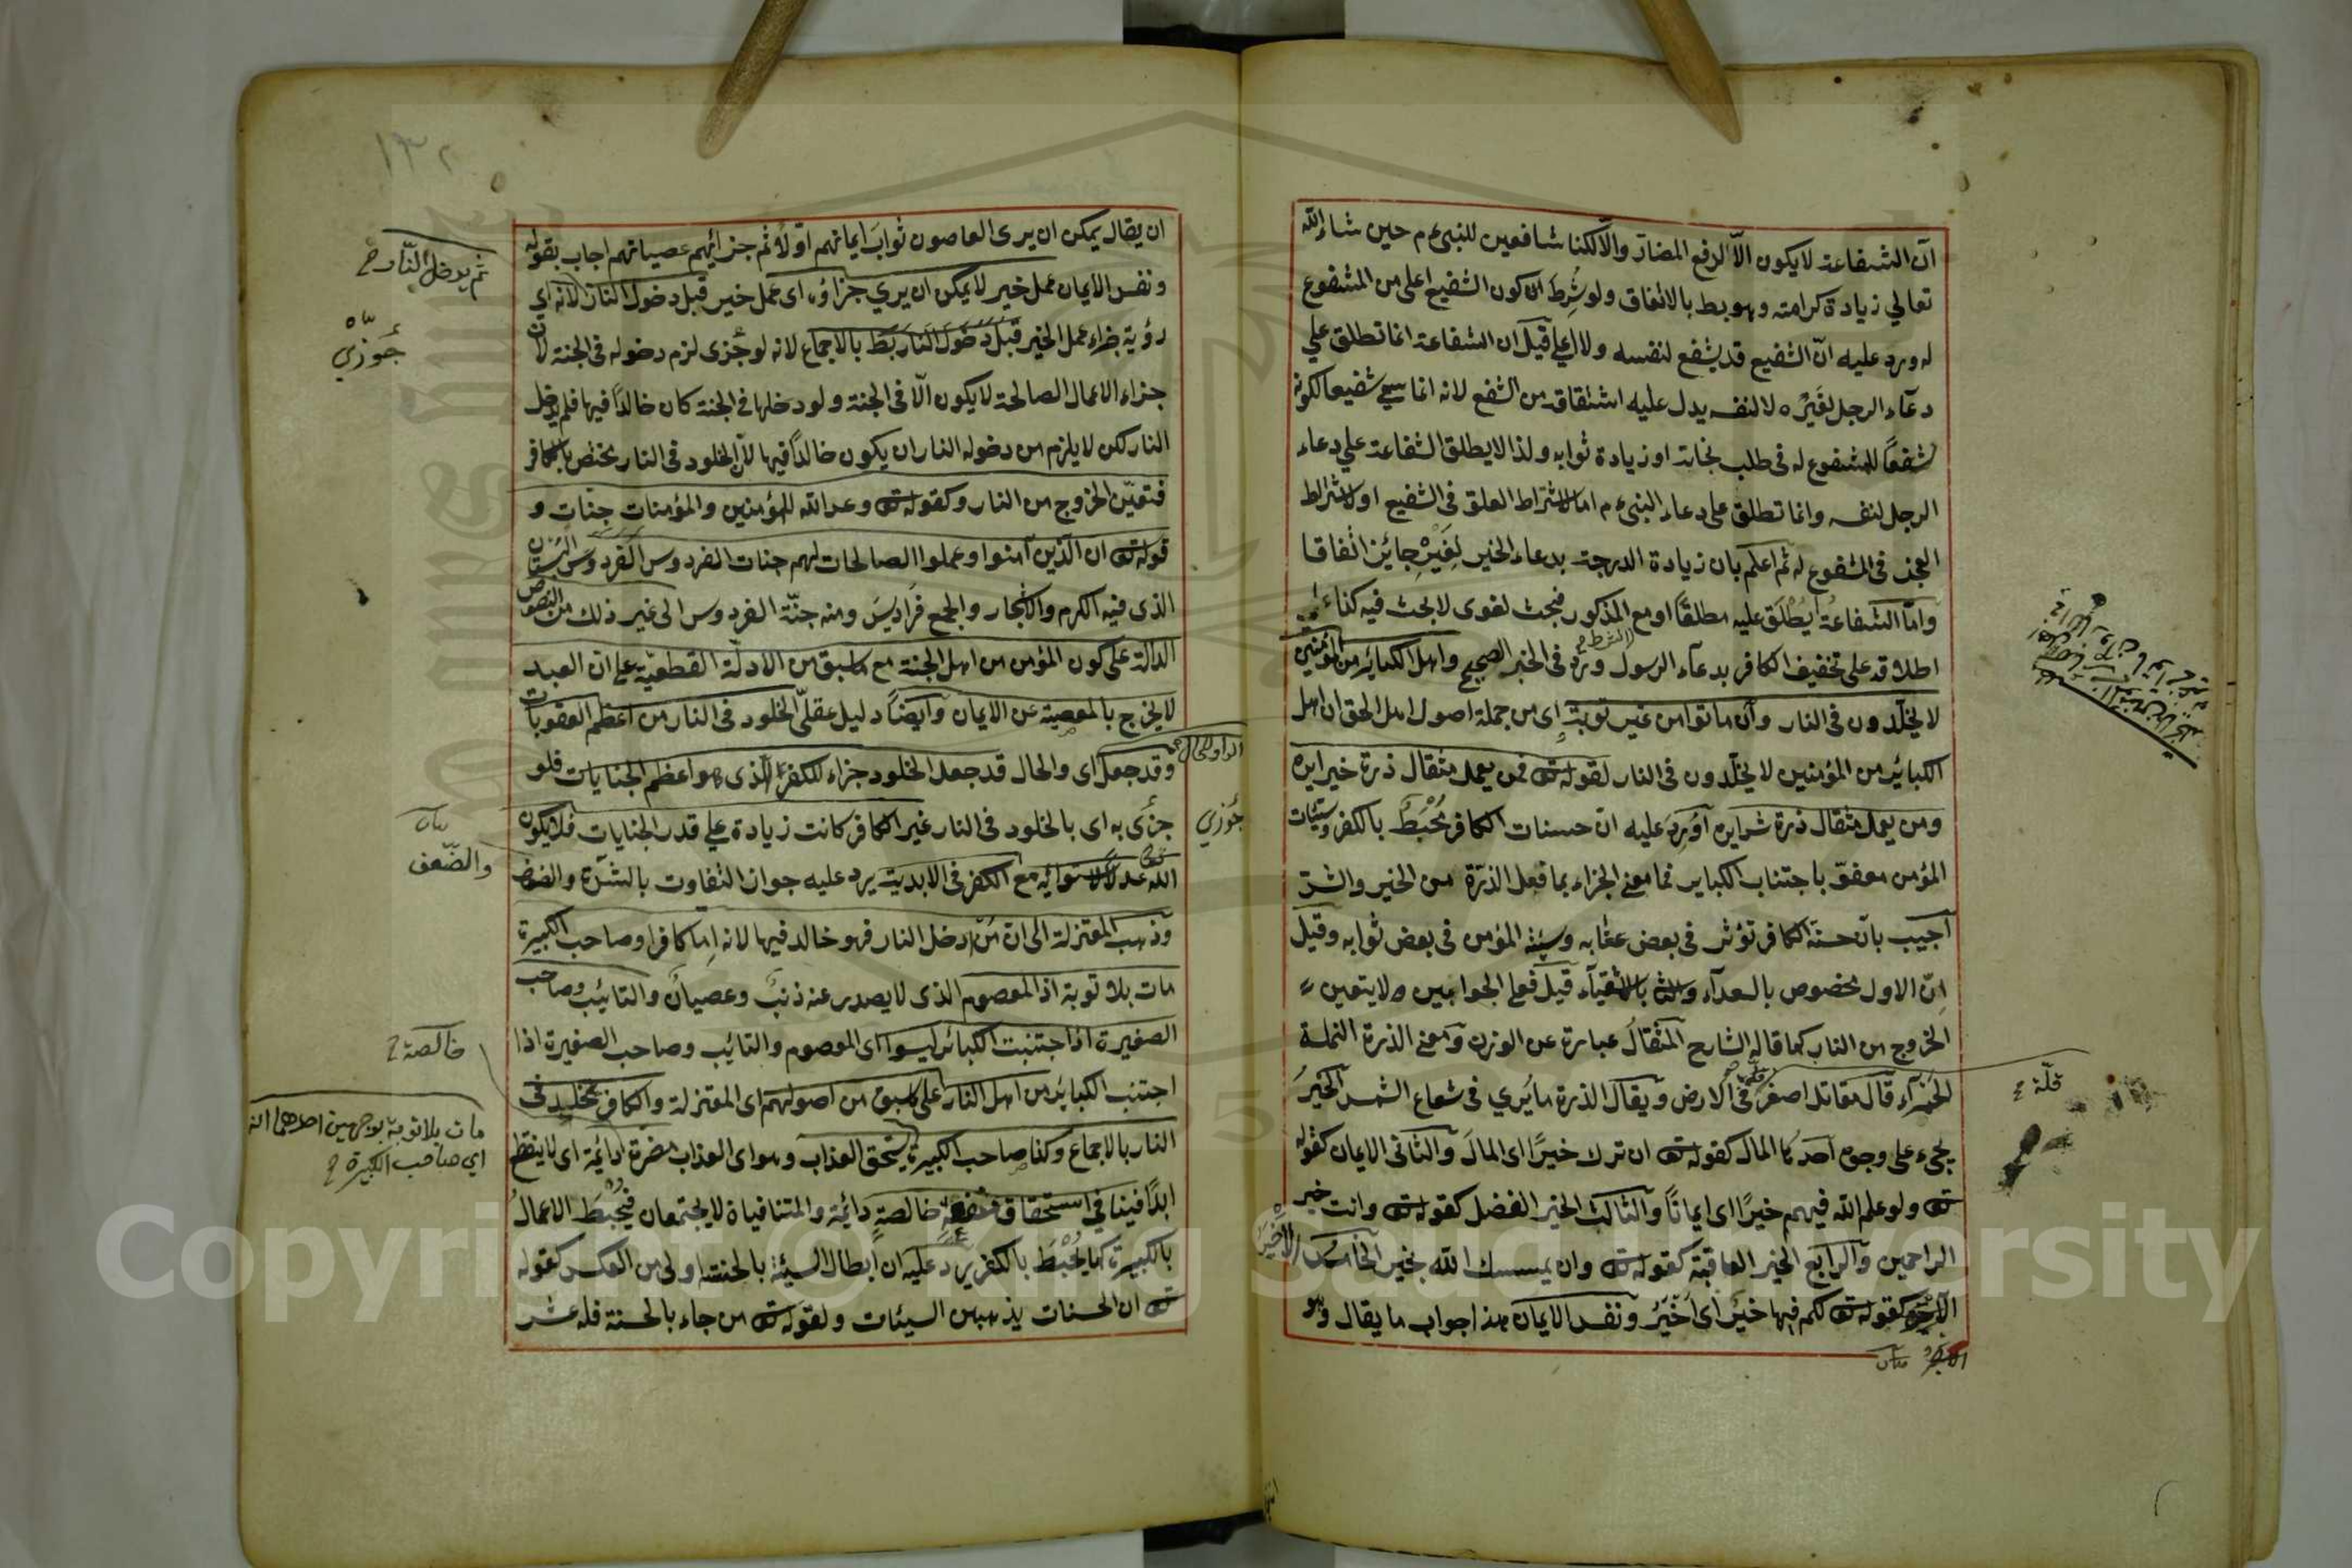 ان الشفاعة لا يكون الّا لرفع المضارّ والّا لكنا شافعين للنبى م حين شاء الله
تعالي زيادة كرامته وهو بط بالاتفاق ولو شُرِط كون الشفيع اعلى من المشفوع
له ورد عليه انّ الشفيع قد يشفع لنفسه ولا اعلى قيل ان الشفاعة انما تطلق علي
دعاء الرجل لغيره لا لنفسه يدل عليه اشتقاقه من الشفع لانه انما سمي شفيعا لكونه
شفعاً للمشفوع له فى طلب نجاته او زيادة ثوابه ولذا لا يطلق الشفاعة علي دعاء
الرجل لنفسه وانما تطلق على دعاء النبى م اما لاشتراط العلو فى الشفيع او لاشتراط
العجز فى المشفوع له ثم اعلم بان زيادة الدرجة بدعاء الخير لِغَيْرِ جائز اتفاقا
وامّا الشفاعة أيُطْلَق عليه مطلقاً او مع المذكور فبحث لغوى لا بحث فيه كذا
اطلاقه على تخفيف الكافر بدعاء الرسول ورد فى الخبر الصحيح واهل الكبائر من المؤمنين
لا يخلّدون فى النار وان ماتوا من غير توبة اى من جملة اصول اهل الحق ان اهل
الكبائر من المؤمنين لا يخلّدون فى النار لقوله تعه فمن يعمل مثقال ذرة خيرا يره
ومن يعمل مثقال ذرة شرا يره أُورِدَ عليه ان حسنات الكافر مُحْبَطٌ بالكفر وسيئات
المؤمن معفوّ باجتناب الكباير فما معنى الجزاء بما فعل الذرّة من الخير والشرّ
اجيب بان حسنة الكافر تؤثر فى بعض عقابه وسيئة المؤمن فى بعض ثوابه وقيل
انّ الاول مخصوص بالسعدآء والثا بالاشقيآء قيل فعلى الجوابين لا يتعين
الخروج من النار كما قاله الشارح المثقال عبارة عن الوزن ومعنى الذرة النملة
الحمرآء قال مقاتل اصغر فى الارض ويقال الذرة ما يُري فى شعاع الشمس الخيرُ
يجىء على وجوه احدها المال كقوله تعه ان ترك خيرًا اى المال والثانى الايمان كقوله
تعه ولو علم الله فيهم خيرًا اى ايمانًا والثالث الخير الفضل كقوله تعه وانت خير
الراحمين والرابع الخير العافية كقوله تعه وان يمسسك الله بخير الخامس
كقوله تعه لكم فيها خيرٌ اى اَخْيَرُ ونفس الايمان هذا جواب ما يقال وهو
قلّة
ان يقال يمكن ان يرى العاصون ثوابَ ايمانهم اوّلاً ثم جزائهم عصيانهم اجاب بقوله
ونفس الايمان عمل خير لا يمكن ان يري جزاؤه اى عمل خير قبل دخول النار لانه اى
رؤية جزاء عمل الخير قبل دخول النار بَطَ بالاجماع لانه لو جُزى لزم دخوله فى الجنة لان
جزاء الاعمال الصالحة لا يكون الّا فى الجنة ولو دخلها فى الجنة كان خالداً فيها فلم يدخل
النار لكن لا يلزم من دخوله النار ان يكون خالداً فيها لان الخلود فى النار يختص بالكافر
فتعيّن الخروج من النار وكقوله تعه وعد الله المؤمنين والمؤمنات جنات و
قوله تعه ان الذين آمنوا وعملوا الصالحات لهم جنات الفردوس الفردوس البستان
الذى فيه الكرم والاشجار والجمع فَراديسَ ومنه جنّة الفردوس الى غير ذلك من النصوص
الدالة على كون المؤمن من اهل الجنة مع ما سبق من الادلّة القطعيّة على ان العبد
لا يخرج بالمعصية عن الايمان وايضاً دليل عقلىّ الخلود فى النار من اعظم العقوبات
وقد جعل اى والحال قد جعل الخلود جزاء للكفر الذى هو اعظم الجنايات فلو
جزى به اى بالخلود فى النار غير الكافر كانت زيادة على قدر الجنايات فلا يكون
الله عدلا لاستوائه مع الكفر فى الابدية يرد عليه جواز التفاوت بالشدّة
وذهب المعتزلة الى ان مَنْ ادخل النار فهو خالد فيها لانه اِمّا كافر او صاحب الكبيرة
مات بلا توبة اذ المعصوم الذى لا يصدر عنه ذنبٌ وعصيانٌ والتائب وصاحب
الصغيرة اذا اجتنبت الكبائر ليسوا اى المعصوم والتائب وصاحب الصغيرة اذا
اجتنب الكبائر من اهل النار على ما سبق من اصولهم اى المعتزلة والكافر مخلد فى
النار بالاجماع وكذا صاحب الكبيرة يستحق العذاب وهو اى العذاب مضرة دائمة اى لا ينقطع
ابدًا فينافي استحقاق منفعة خالصةٍ دائمة والمتنافيان لا يجتمعان فيُحْبَطُ الاعمالُ
بالكبيرة كما يُحْبَطَ بالكفر يرد عليه ان ابطال السيئة بالحسنة اولى من العكس كقوله
تعه ان الحسنات يذهبن السيئات ولقوله تعه من جاء بالحسنة فله عشر
ثم يدخل النار
جُوزِي
جُوزي
والضّعف
خالصة
مات بلا توبة بوجهين احدهما انه
اى صاحب الكبيرة
١٣٢
Copyright © King Saud University